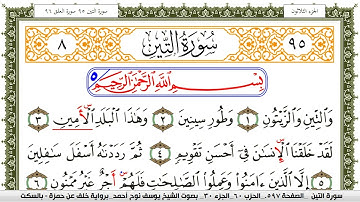 الجزء الثلاثون
سورة التين ٩٥ سورة العلق ٩٦
٩٥ سُورَةُ التِّينِ ٨
بِسْمِ اللَّهِ الرَّحْمَٰنِ الرَّحِيمِ
وَالتِّينِ وَالزَّيْتُونِ ١ وَطُورِ سِينِينَ ٢ وَهَٰذَا الْبَلَدِ الْأَمِينِ ٣
لَقَدْ خَلَقْنَا الْإِنسَٰنَ فِي أَحْسَنِ تَقْوِيمٍ ٤ ثُمَّ رَدَدْنَٰهُ أَسْفَلَ سَٰفِلِينَ
٥ إِلَّا الَّذِينَ ءَامَنُوا وَعَمِلُوا الصَّٰلِحَٰتِ فَلَهُمْ أَجْرٌ غَيْرُ مَمْنُونٍ ٦
سورة التين . الصفحة ٥٩٧ . الحزب ٦٠ . الجزء ٣٠ . بصوت الشيخ يوسف نوح أحمد . برواية خلف عن حمزة - بالسكت